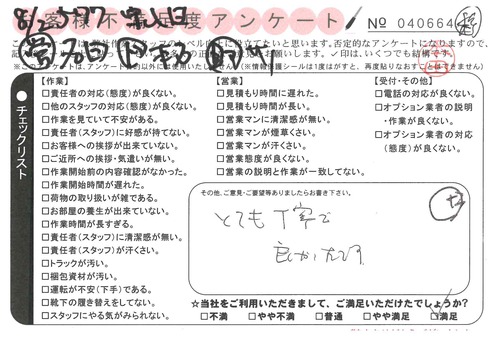 お客様不満足度アンケート
No 040664
チェックリスト
【作業】
□責任者の対応(態度)が良くない。
□他のスタッフの対応(態度)が良くない。
□作業を見ていて不安がある。
□責任者(スタッフ)に好感が持てない。
□お客様への挨拶が出来ていない。
□ご近所への挨拶・気遣いが無い。
□作業開始前の内容確認がなかった。
□作業開始時間が遅れた。
□荷物の取り扱いが雑である。
□お部屋の養生が出来ていない。
□作業時間が長すぎる。
□責任者(スタッフ)に清潔感が無い。
□責任者(スタッフ)が汗くさい。
□トラックが汚い。
□梱包資材が汚い。
□運転が不安(下手)である。
□靴下の履き替えをしてない。
□スタッフにやる気がみられない。
【営業】
□見積もり時間に遅れた。
□見積もり時間が長い。
□営業マンに清潔感が無い。
□営業マンが煙草くさい。
□営業マンが汗くさい。
□営業態度が良くない。
□営業の説明と作業が一致してない。
【受付・その他】
□電話の対応が良くない。
□オプション業者の説明
・作業が良くない。
□オプション業者の対応
(態度)が良くない。
その他、ご意見・ご要望等ありましたらお書き下さい。
とても丁寧で
良かったです
☆当社をご利用いただきまして、ご満足いただけたでしょうか?
□不満 □やや不満 □普通 □やや満足 □満足